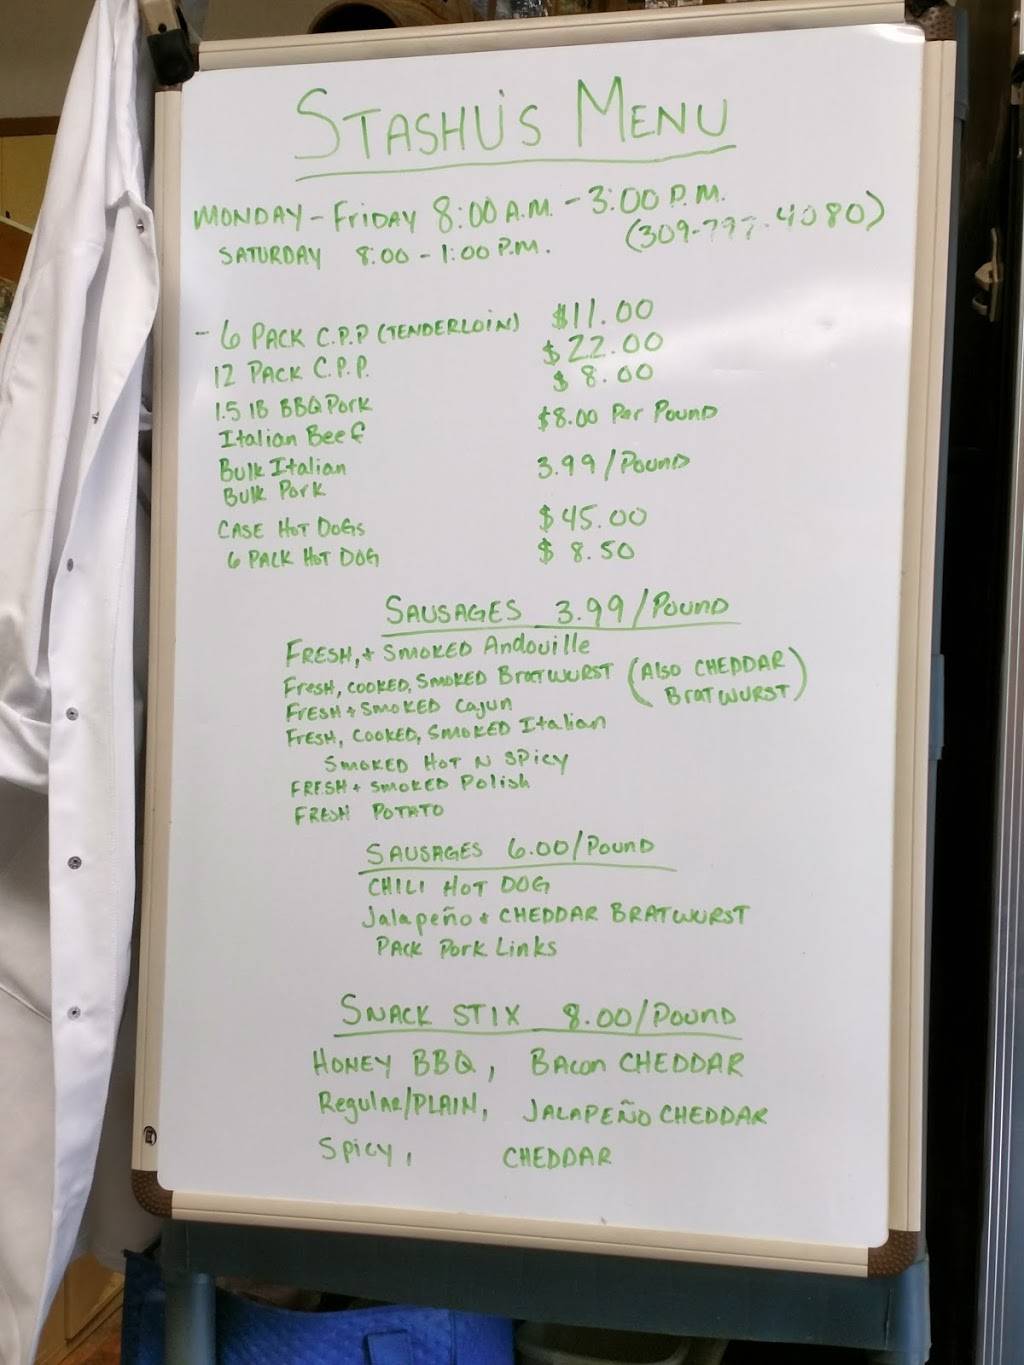 STASHU'S MENU
MONDAY - FRIDAY 8:00 A.M. - 3:00 P.M.
SATURDAY 8:00 - 1:00 P.M. (309-797-4080)
- 6 PACK C.P.P (TENDERLOIN) $11.00
12 PACK C.P.P. $22.00
1.5 lB BBQ Pork $8.00
Italian Beef $8.00 Per Pound
Bulk Italian 3.99/Pound
Bulk Pork
CASE HOT DOGS $45.00
6 PACK HOT DOG $8.50
SAUSAGES 3.99/Pound
FRESH, + SMOKED Andouille
FRESH, COOKED, SMOKED BratWURST (Also CHEDDAR BratWURST)
FRESH + SMOKED Cajun
FRESH, COOKED, SMOKED Italian
SMOKED HOT N SPICY
FRESH + SMOKED Polish
FRESH POTATO
SAUSAGES 6.00/Pound
CHILI HOT DOG
Jalapeño + CHEDDAR BRATWURST
PACK Pork Links
SNACK STIX 8.00/Pound
HONEY BBQ, Bacon CHEDDAR
Regular/PLAIN, JALAPEÑO CHEDDAR
Spicy, CHEDDAR